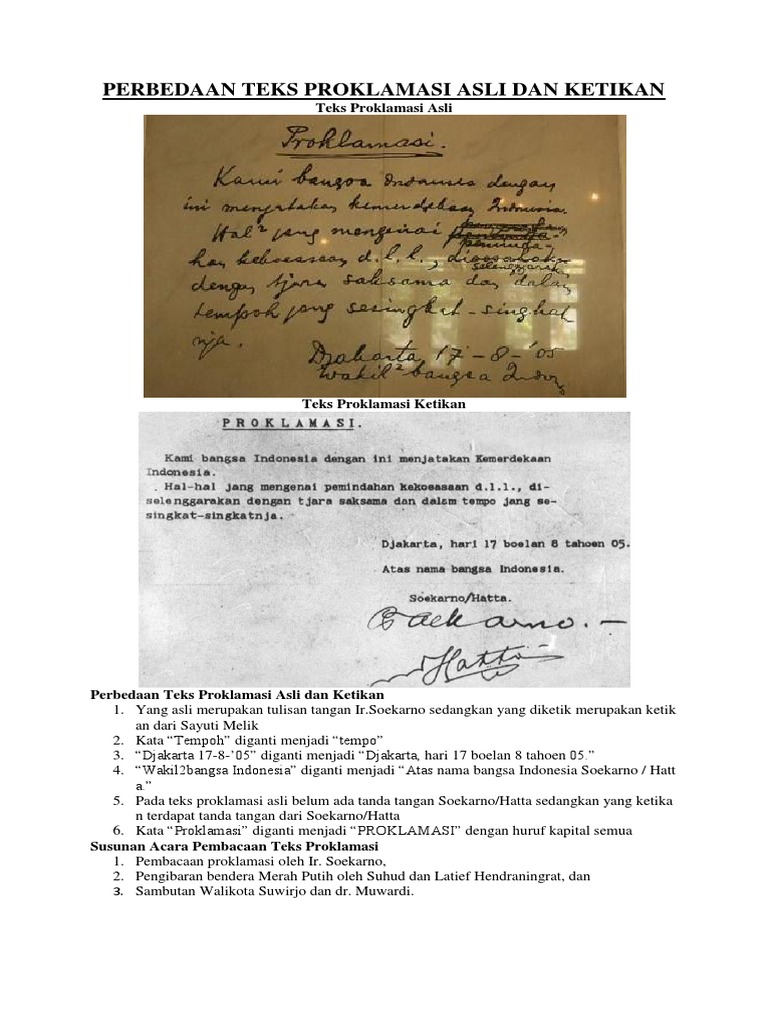 PERBEDAAN TEKS PROKLAMASI ASLI DAN KETIKAN
Teks Proklamasi Asli
Proklamasi.
Kami bangsa Indonesia dengan
ini menjatakan kemerdekaan Indonesia.
Hal² jang mengenai
peminda-
han kekoeasaan d.l.l., dioesahakan
selenggarakan
dengan tjara saksama dan dalam
tempoh jang sesingkat-singkat
nja.
Djakarta 17 - 8 - '05
Wakil² bangsa Indon
Teks Proklamasi Ketikan
P R O K L A M A S I.
Kami bangsa Indonesia dengan ini menjatakan Kemerdekaan
Indonesia.
Hal-hal jang mengenai pemindahan kekoeasaan d.l.l., di-
selenggarakan dengan tjara saksama dan dalam tempo jang se-
singkat-singkatnja.
Djakarta, hari 17 boelan 8 tahoen 05.
Atas nama bangsa Indonesia.
Soekarno/Hatta.
Soekarno.-
Hatta
Perbedaan Teks Proklamasi Asli dan Ketikan
1. Yang asli merupakan tulisan tangan Ir.Soekarno sedangkan yang diketik merupakan ketik
an dari Sayuti Melik
2. Kata “Tempoh” diganti menjadi “tempo”
3. “Djakarta 17-8-’05” diganti menjadi “Djakarta, hari 17 boelan 8 tahoen 05.”
4. “Wakil2bangsa Indonesia” diganti menjadi “Atas nama bangsa Indonesia Soekarno / Hatt
a.”
5. Pada teks proklamasi asli belum ada tanda tangan Soekarno/Hatta sedangkan yang ketika
n terdapat tanda tangan dari Soekarno/Hatta
6. Kata “Proklamasi” diganti menjadi “PROKLAMASI” dengan huruf kapital semua
Susunan Acara Pembacaan Teks Proklamasi
1. Pembacaan proklamasi oleh Ir. Soekarno,
2. Pengibaran bendera Merah Putih oleh Suhud dan Latief Hendraningrat, dan
3. Sambutan Walikota Suwirjo dan dr. Muwardi.